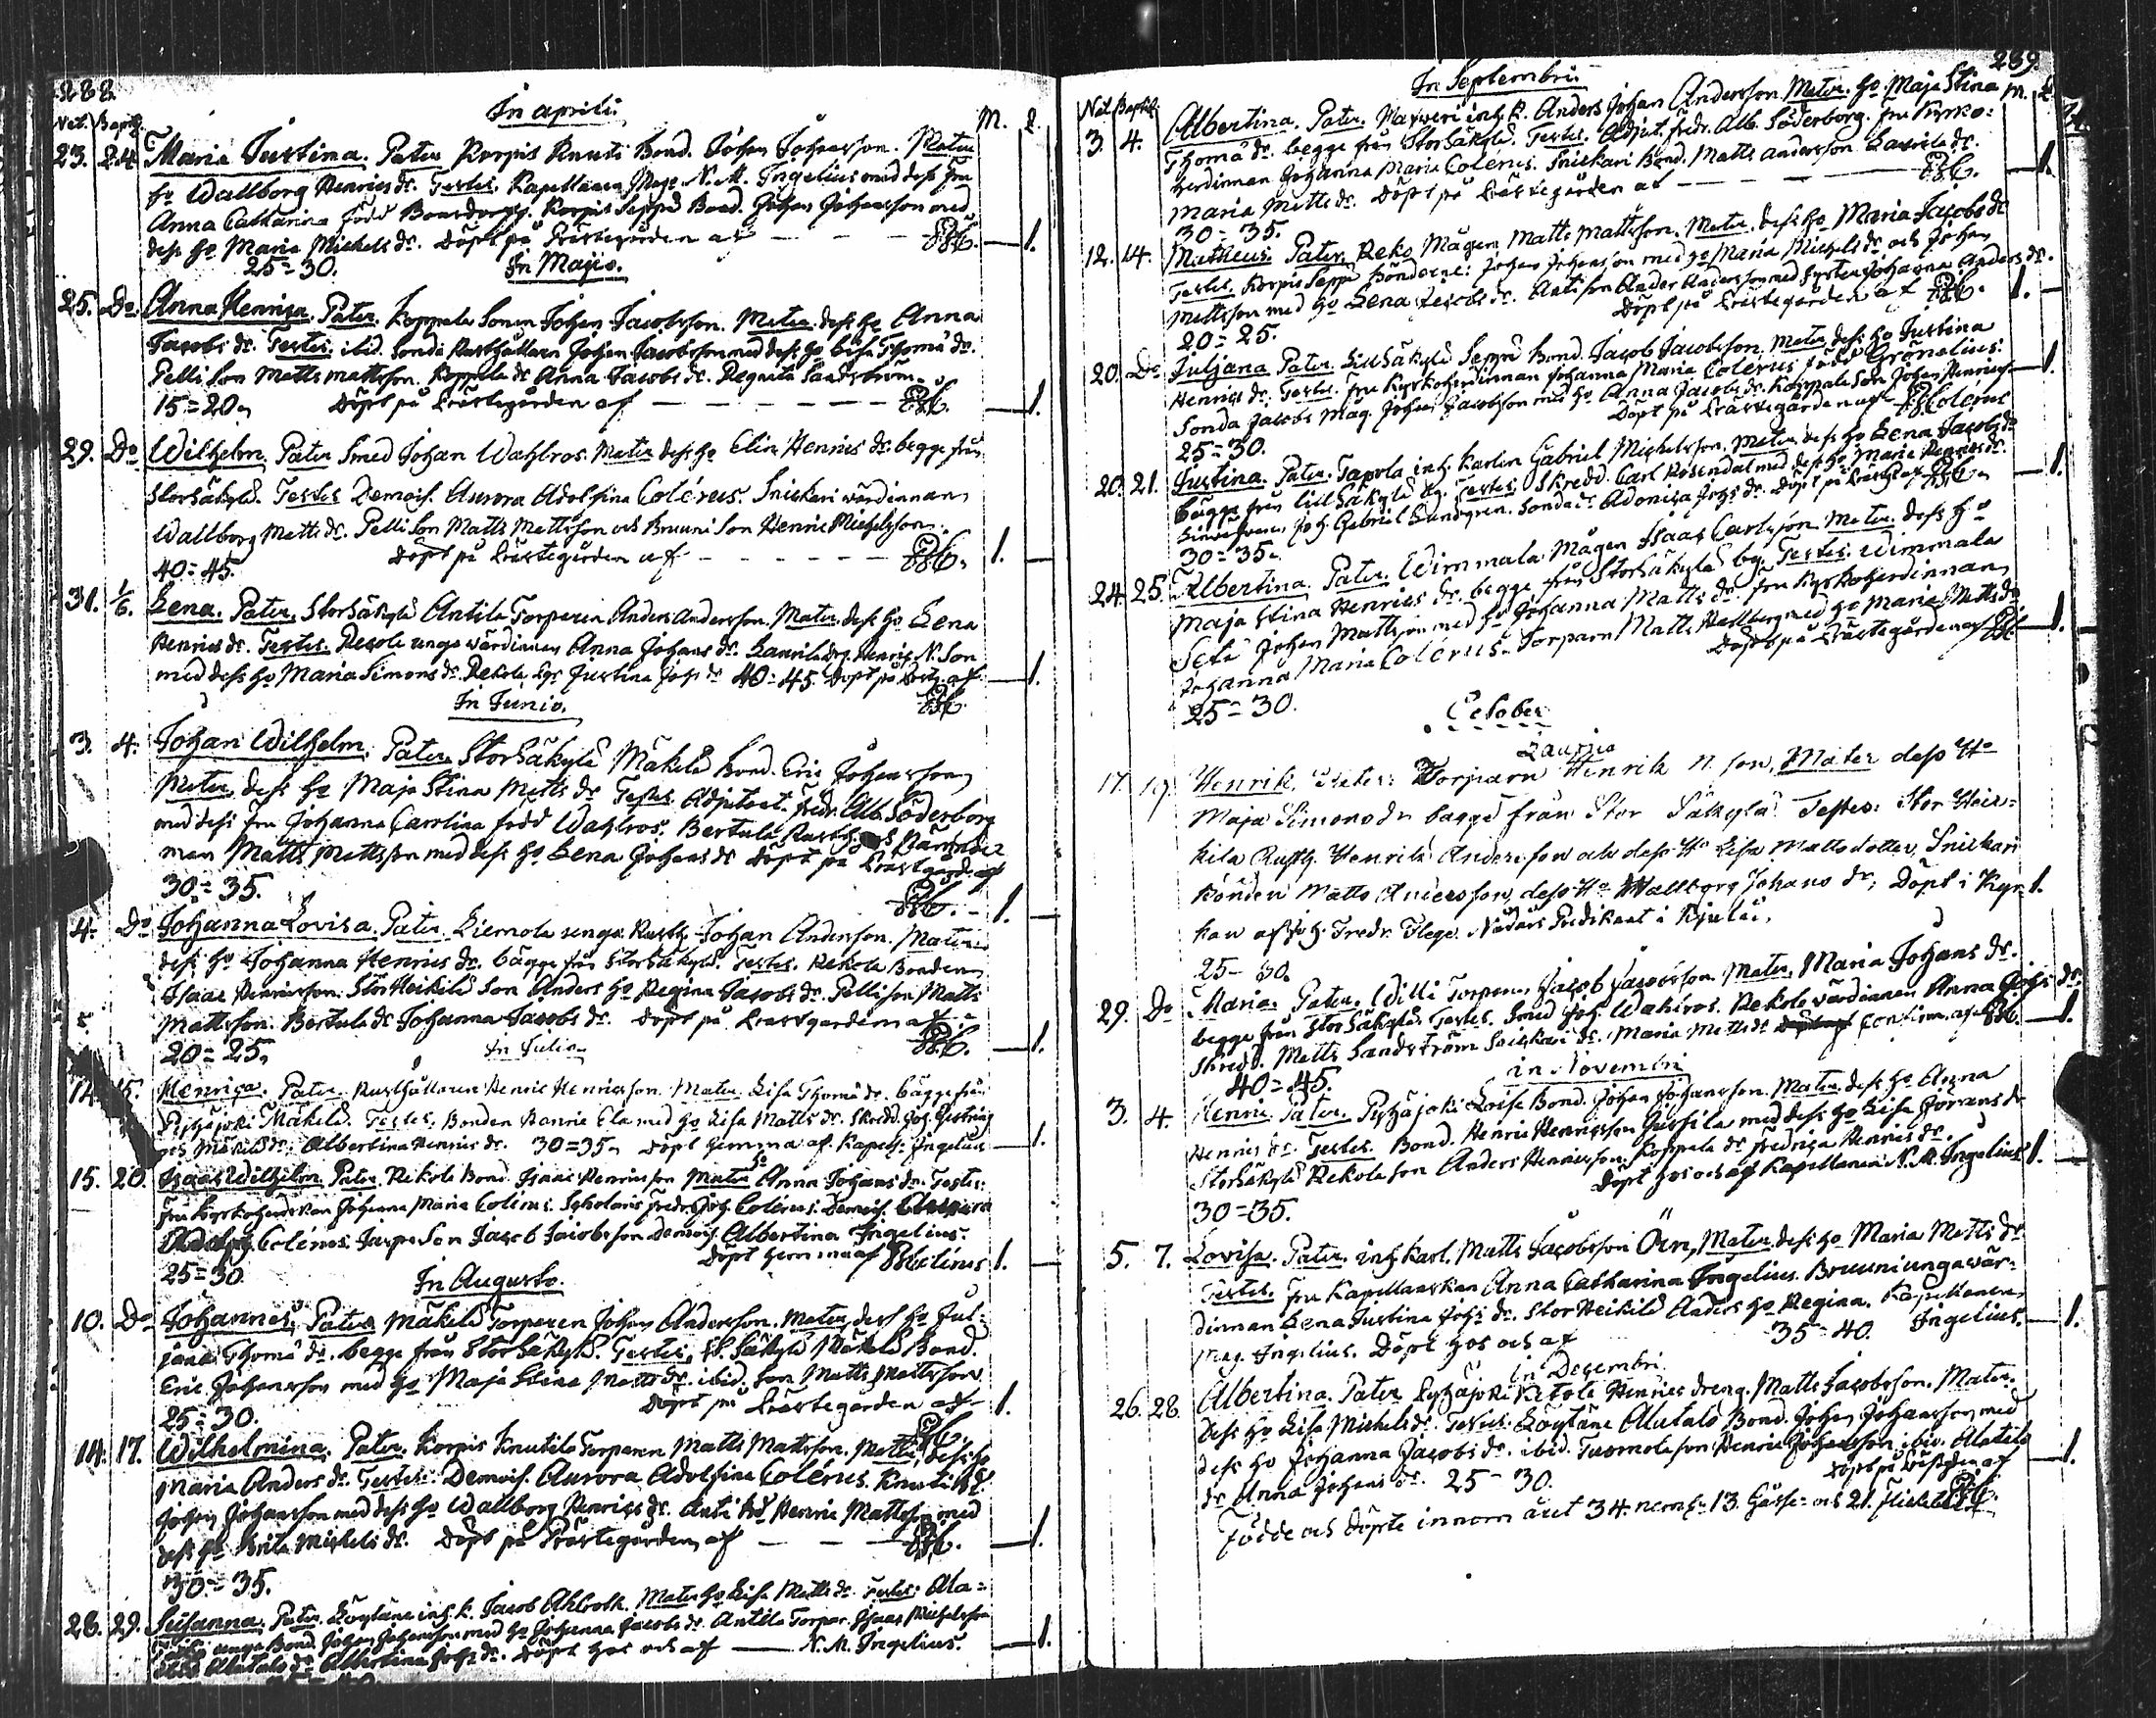 288.
In aprili.
Nat. Bapt. M. F.
23. 24. Maria Justina. Pater Korpis Knuti Bond. Johan Johansson. Mater
ho Wallborg Henrics dr. Testes. Kapellanen Mag. N. M. Ingelius med dess fru
Anna Catharina född Bonsdorff. Korpis Seppä Bond. Johan Johansson med
dess ho Maria Michels dr. Döpt på Prästegården af 1.
25=30. In Majo.
25. Do Anna Henrica. Pater. Koppala Sonen Johan Jacobsson. Mater dess ho Anna
Jacobs dr. Testes. ibid. Sonda Rusthållaren Johan Jacobsson med dess ho Lisa Thomæ dr.
Pelli Son Matts Mattsson. Koppala dr Anna Jacobs dr. Regnita Sandström.
15=20. Döpt på Prästegården af 1.
29. Do Wilhelm. Pater Smed Johan Wahlros. Mater dess ho Elin Henrics dr. begge från
Storsäkylä. Testes Demois. Aurora Adolfina Colérus. Snickari wärdinnan
Wallborg Matts dr. Pelli Son Matts Mattsson och Bruuni Son Henric Michelsson.
40=45. Döpt på Prästegården af 1.
31. 1/6. Lena. Pater. Storsäkylä Antila Torparen Anders Andersson. Mater dess ho Lena
Henrics dr. Testes. Rekole unga wärdinnan Anna Johans dr. Laurila Henric N. Son
med dess ho Maria Simons dr. Rekola Justina Johs dr 40=45. Döpt på Prästg. af 1.
In Junio.
3. 4. Johan Wilhelm. Pater Storsäkylä Mäkelä Bond. Eric Johansson
Mater dess ho Maja Stina Matts dr Testes. Adjutant. Fredr. Alb. Söderborg
med dess fru Johanna Carolina född Wahlros. Bertula Rusth. och Nämnde
man Matts Mattsson med dess ho Lena Johans dr Döpt på Prästgård. af
30=35. 1.
4. Do Johanna Lovisa. Pater. Liemola unga Rusth. Johan Andersson. Mater
dess ho Johanna Henrics dr. bägge från Storsäkylä. Testes. Rekola Bonden
Isaac Henricsson. Stor Heikilä Son Anders ho Regina Jacobs dr. Pelli son Matts
Mattsson. Bertula dr Johanna Jacobs dr. Döpt på Prästgården af
20=25. In Julio. 1.
14. 15. Henrica. Pater. Rusthållaren Henric Henricsson. Mater. Lisa Thomæ dr. bägge från
Pyhäjoki Mäkelä. Testes. Bonden Henric Ela med ho Lisa Matts dr. Skredd. Joh.
Mäkelä dr. Albertina Henrics dr. 30=35. Döpt hemma af Kapell. Ingelius 1.
15. 20. Isaac Wilhelm. Pater. Rekola Bond. Isaac Henricsson Mater ho Anna Johans dr. Testes:
Fru Kyrkoherdskan Johanna Maria Colérus. Scholaris Fredr. Joh. Colérus. Demois. Aurora
Adolf. Colérus. Jaspe Son Jacob Jacobsson Demois. Albertina Ingelius.
25=30. Döpt hemma af Colérus 1.
In Augusto.
10. Do Johannes. Pater Mäkelä Torparen Johan Andersson. Mater dess ho Jul-
jana Thomæ dr. begge från Storsäkylä. Testes. St. Säkylä Mäkelä Bond.
Eric Johansson med ho Maja Stina Matts dr. ibid. Son Matts Mattsson
25=30. Döpt på Prästegården af 1.
14. 17. Wilhelmina. Pater. Korpis Knutila Torparen Matts Mattsson. Mater dess ho
Maria Anders dr. Testes. Demois. Aurora Adolfina Colérus. Knuti
Johan Johansson med dess ho Wallborg Henrics dr. Anti Henric Mattsson med
dess ho Brita Michels dr. Döpt på Prästegården af 1.
30=35.
28. 29. Susanna. Pater. Löytäne inh. k. Jacob Ahlroth. Mater ho Lisa Matts dr. Testes: Ala=
unga Bond. Johan Johansson med ho Johanna Jacobs dr. Antila Torpar. Isaac Michelsson
Alatalo dr Albertina Johs dr. Döpt hos och af N. M. Ingelius. 1.
289.
In Septembri.
Nat. Bapt. M. F.
3. 4. Albertina. Pater. inh. k. Anders Johan Andersson. Mater. ho Maja Stina
Thomæ dr. begge från Storsäkylä. Testes. Adjut. Fredr. Alb. Söderborg. Fru Kyrko=
herdinnan Johanna Maria Colérus. Snickari Bond. Matts Andersson Laurila dr.
Maria Matts dr. Döpt på Prästegården af 1.
30=35.
12. 14. Matheus. Pater. Reko Mågen Matts Mattsson. Mater. dess ho Maria Jacobs dr
Testes. Korpis Seppä Bönderne: Johan Johansson med ho Maria Michels dr. och Johan
Mattsson med ho Lena Jacobs dr. Anti son Ander Andersson med syster Johanna Anders dr.
20=25. Döpt på Prästegården af 1.
20. Do Juljana. Pater. Lillsäkylä Seppä Bond. Jacob Jacobsson. Mater dess ho Justina
Henrics dr. Testes. Fru Kyrkoherdinnan Johanna Maria Colérus född Grönelius.
Sonda Jacobs Mag. Johan Jacobsson med ho Anna Jacobs dr. Koppala Son Johan Henricss.
25=30. Döpt på Prästegården af Colérus 1.
20. 21. Justina. Pater. Tapola inh. Karlen Gabriel Michelsson. Mater dess ho Lena Jacobs dr
bägge från Lillsäkylä by. Testes. Skredd. Carl Rosendal med dess ho Maria Henrics dr.
Joh. Gabriel Lundgren. Sonda dr. Adonica Johs dr. Döpt på Prästg. af 1.
30=35.
24. 25. Albertina. Pater. Wimmala Mågen Isaac Carlsson. Mater. dess ho
Maja Stina Henrics dr. begge från Storsäkylä by. Testes. Wimmala
Johan Mattsson med ho Johanna Matts dr. Fru Kyrkoherdinnan
Johanna Maria Colérus. Torparn Matts Hellberg med ho Maria Matts dr
25=30. Döpt på Prästegården af 1.
October
17. 19. Henrik. Pater: Laurila Torparn Henrik N. son, Mater dess Ho
Maja Simons dr bagge från Stor Säkylä. Testes: Stor Hei=
kila Rusth. Henrik Andersson och dess Ho Lisa Matts dotter, Snickari
Bonden Matts Andersson, dess Ho Wallborg Johans dr, Döpt i Kyr- 1.
kan af Joh. Fredr. Flege. Nådårs Predikant i Kjulai.
25-30.
29. Do Maria. Pater. Willi Torparen Jacob Jacobsson. Mater. Maria Johans dr.
begge från Storsäkylä. Testes. Smed Joh. Wahlros. Rekola värdinnan Anna Johs dr.
Skredd. Matts Sandström Snickari dr. Maria Matts dr confirm. af 1.
40=45.
in Novembri
3. 4. Henric. Pater. Pyhäjoki Loise Bond. Johan Johansson. Mater. dess ho Anna
Henrics dr. Testes. Bond. Henric Henricsson Jussila med dess ho Lisa Jörrans dr
Storsäkylä Rekola son Anders Henricsson. Koppala dr Fredrica Henrics dr.
30=35. Döpt hos och af Kapellanen N. M. Ingelius 1.
5. 7. Lovisa. Pater. inh. Karl. Matts Jacobsson Örn, Mater dess ho Maria Matts dr
Testes. Fru Kapellanskan Anna Catharina Ingelius. Bruuni unga wär-
dinnan Lena Justina Johs dr. Stor Heikilä Anders ho Regina. Kapellanen
Mag. Ingelius. Döpt hos och af 35-40. Ingelius. 1.
in Decembri
26. 28. Albertina. Pater Pyhäjoki Ketola Henrics dreng. Matts Jacobsson. Mater.
dess ho Lisa Michels dr. Testes. Löytäne Alatalo Bond. Johan Johansson med
dess ho Johanna Jacobs dr. ibid. Tuomola son Henric Johansson. ibid. Alatalo
dr Anna Johans dr. 25-30. Döpt på Prästgården af 1.
Födde och Döpte innom året 34. neml. 13. Gosse- och 21. flickebarn.